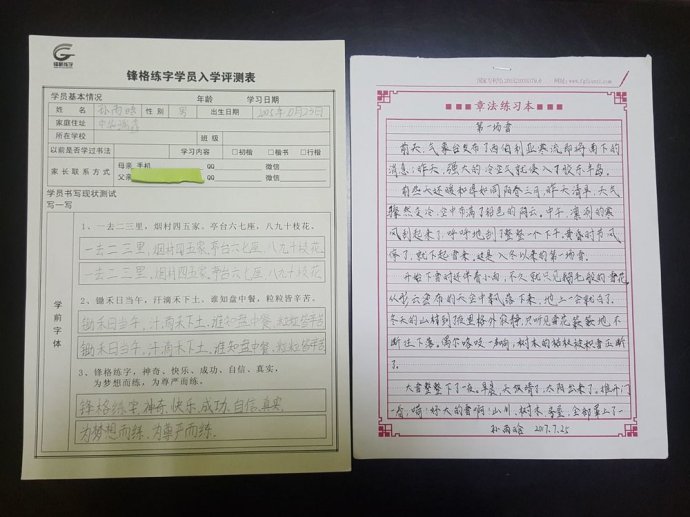 锋格练字
锋格练字学员入学评测表
学员基本情况 年龄 学习日期
姓名 性别 男 出生日期
家庭住址
所在学校 班级
以前是否学过书法 学习内容 □初楷 □楷书 □行楷
家长联系方式 母亲 手机 QQ 微信
父亲 QQ 微信
学员书写现状测试
写一写
学前字体
1、一去二三里，烟村四五家。亭台六七座，八九十枝花。
一去二三里，烟村四五家，亭台六七座，八九十枝花
一去二三里，烟村四五家，亭台六七座，八九十枝花
2、锄禾日当午，汗滴禾下土。谁知盘中餐，粒粒皆辛苦。
锄禾日当午，汗滴禾下土，谁知盘中餐，粒粒皆辛苦
锄禾日当午，汗滴禾下土，谁知盘中餐，粒粒皆辛苦
3、锋格练字，神奇、快乐、成功、自信、真实，
为梦想而练，为尊严而练。
锋格练字，神奇、快乐、成功、自信、真实，
为梦想而练、为尊严而练。
章法练习本
第一场雪
前天，气象台发布了西伯利亚寒流即将南下的
消息；昨天，强大的冷空气就侵入了胶东半岛。
前些天还暖和得如同阳春三月，昨天清早，天气
骤然变冷，空中布满了铅色的阴云。中午，凛冽的寒
风刮起来了，呼呼地刮了整整一个下午。黄昏时节风
停了，就下起雪来，这是入冬以来的第一场雪。
开始下雪时还伴着小雨，不久就只见鹅毛般的雪花
从彤云密布的天空中飘落下来，地上一会就白了。
冬天的山村到夜里格外寂静，只听见雪花簌簌地不
断往下落。偶尔咯吱一声响，树木的枯枝被积雪压断
了。
大雪整整下了一夜。早晨，天放晴了，太阳出来了。推开门
一看，嗬，好大的雪啊！山川、树木、房屋，全部罩上了一
2017.7.25